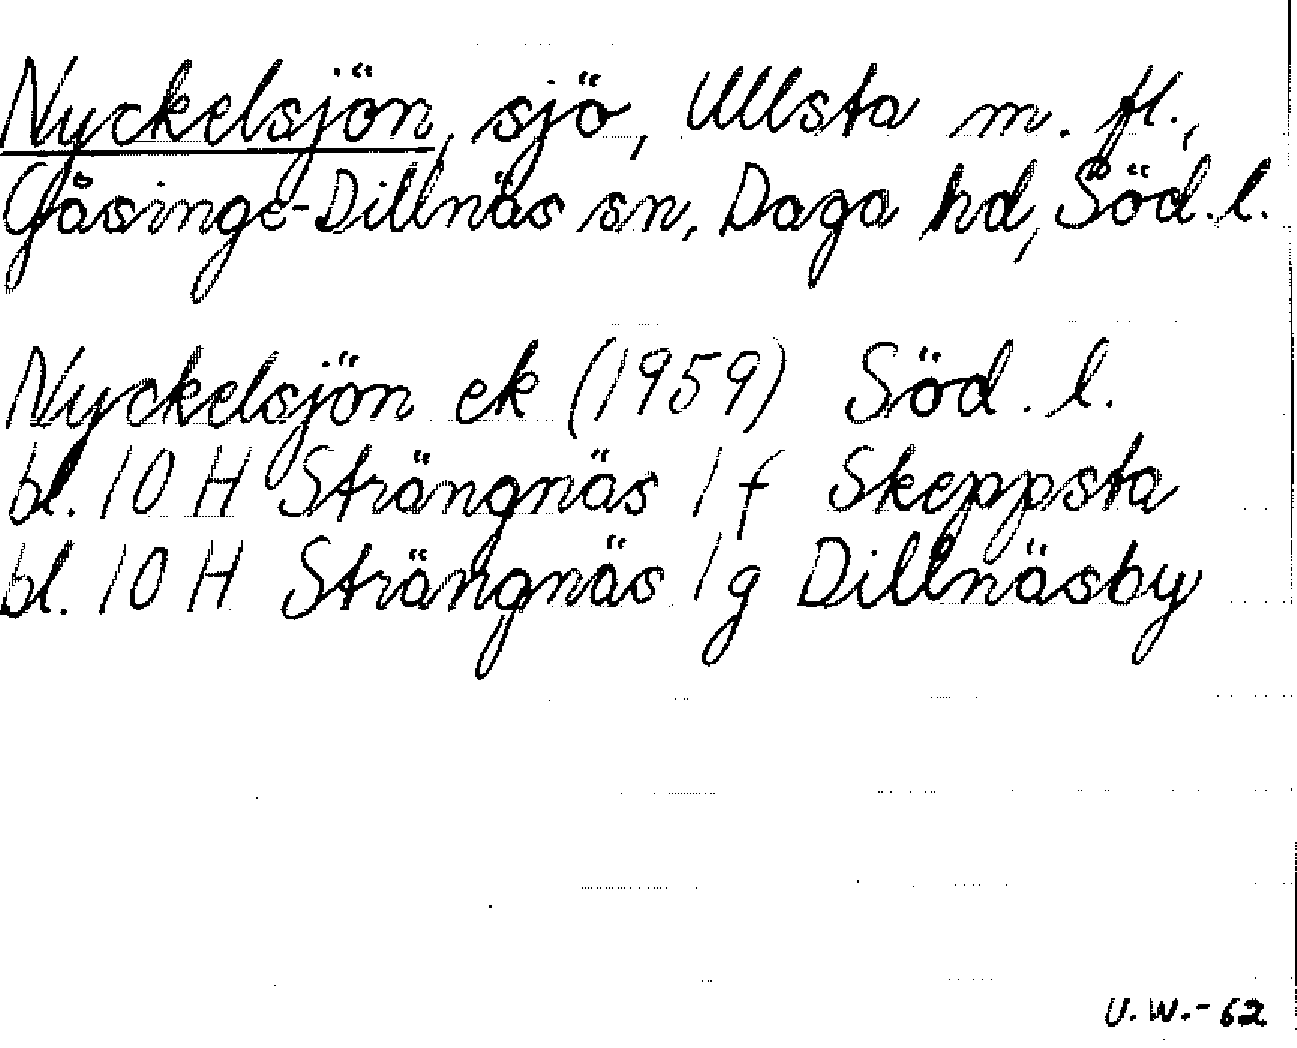 Nyckelsjön, sjö, Ullsta m. fl.,
Gåsinge-Dillnäs sn, Daga hd, Söd. l.
Nyckelsjön ek (1959) Söd. l.
bl. 10 H Strängnäs 1 f Skeppsta
bl. 10 H Strängnäs 1 g Dillnäsby
U. W. - 62